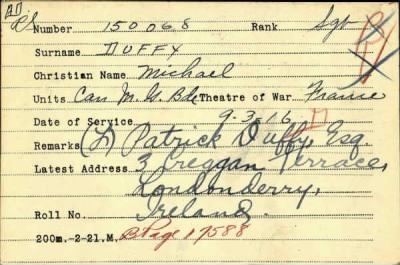 Number 150068 Rank Sgt
Surname DUFFY
Christian Name Michael
Units Can M. G. Bde Theatre of War France
Date of Service 9-3-16
Remarks (L) Patrick Duffy, Esq.
Latest Address 3 Creggan Terrace,
Londonderry,
Roll No. Ireland.
200m.-2-21.M. B Page 17588